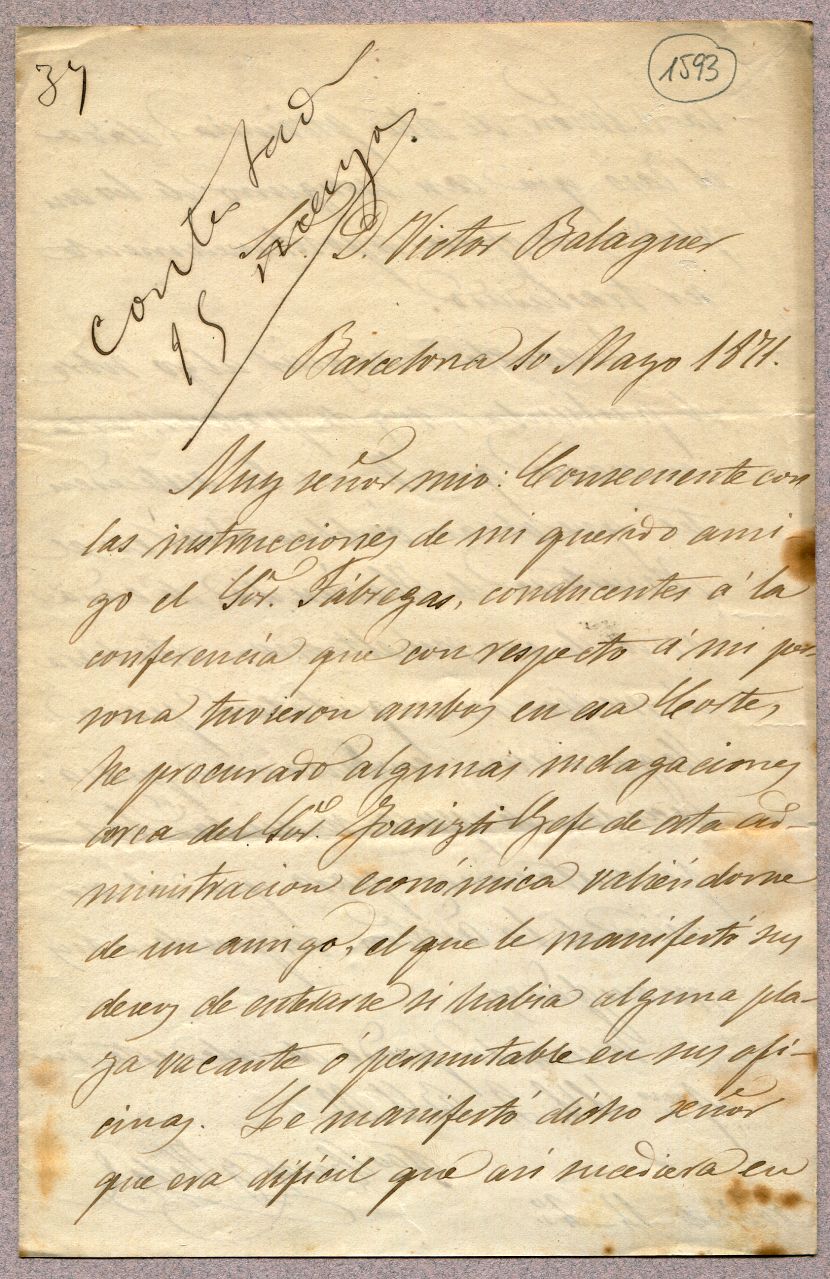 37
1593
contestad
15 mayo.
Sor. D. Victor Balaguer
Barcelona 10 Mayo 1871.
Muy señor mio: Consecuente con
las instrucciones de mi querido ami-
go el Sor. Fábregas, conducentes á la
conferencia que con respecto á mi per-
sona tuvieron ambos en esa Corte,
he procurado algunas indagaciones
acerca del Sor. Joarizti Gefe de esta ad-
ministracion económica valiéndome
de un amigo, el que le manifestó sus
deseos de enterarse si habia alguna pla-
za vacante ó permutable en sus ofi-
cinas. Le manifestó dicho señor
que era dificil que asi sucediera en